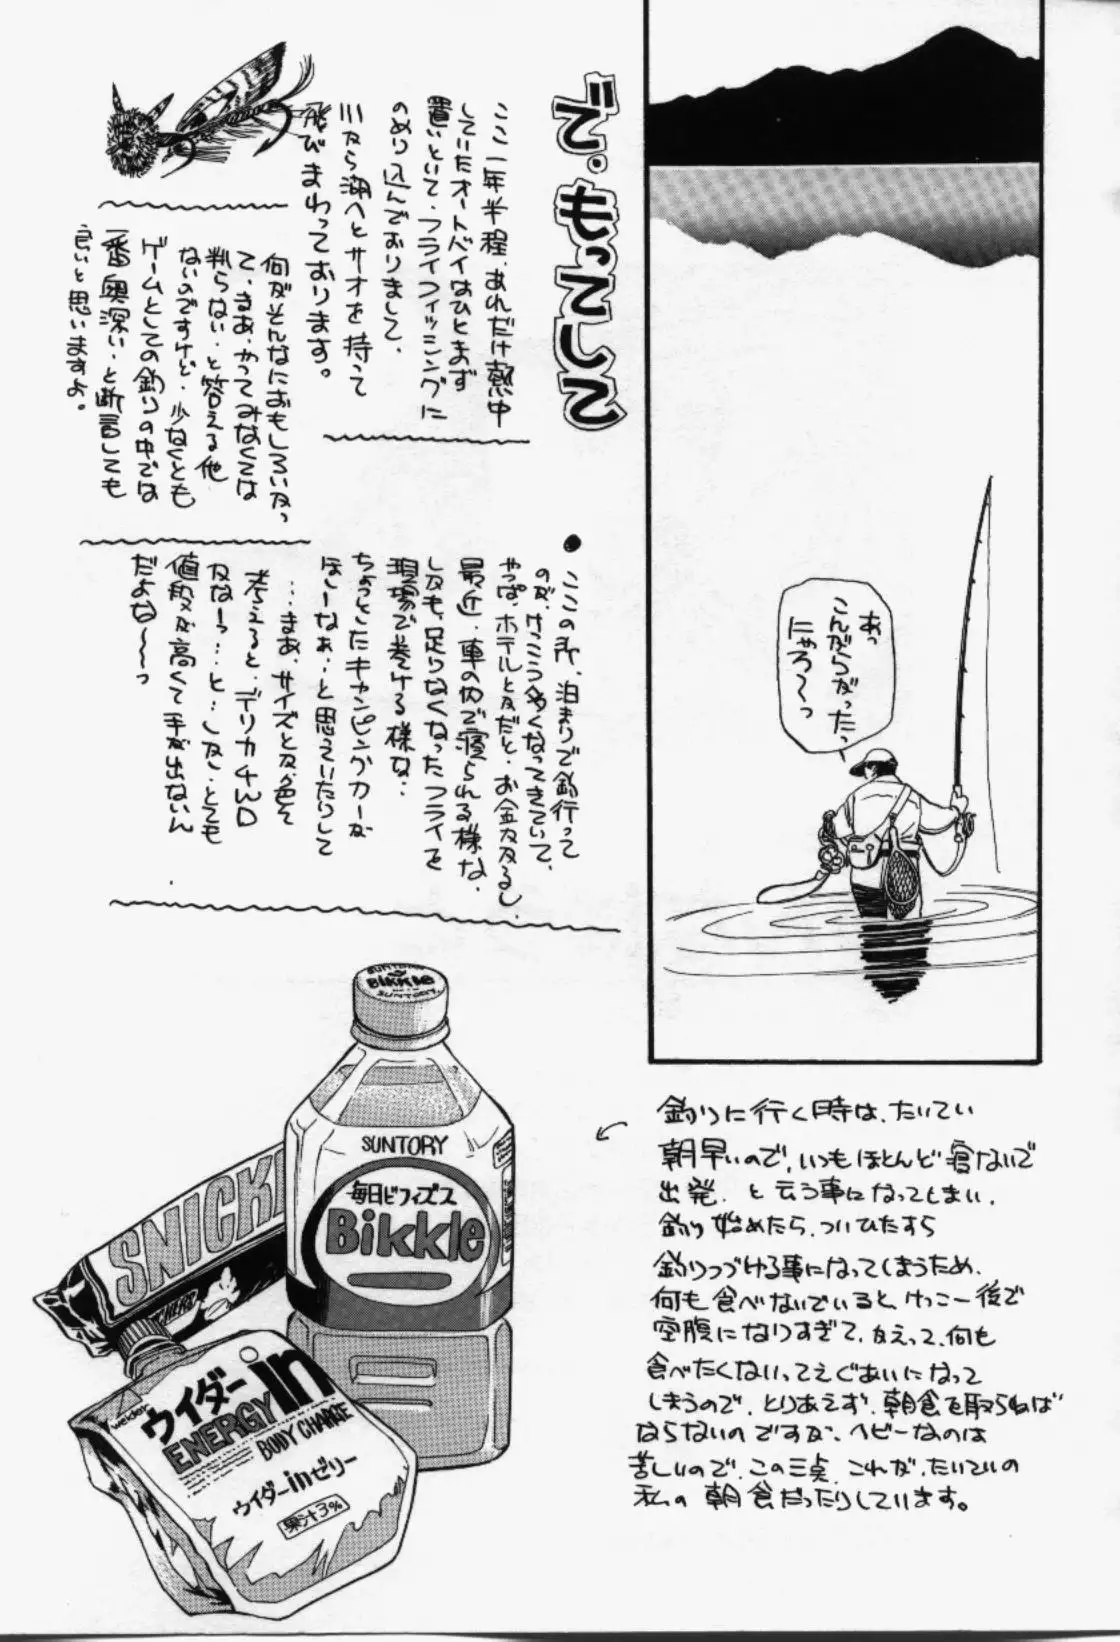 で、もってして
ここ一年半程、あれだけ熱中
していたオートバイはひとまず
置いといて、フライフィッシングに
のめり込んでおりまして、
川から湖へとサオを持って
飛びまわっております。
何がそんなにおもしろいかっ
て、まあ、やってみなくては
判らない、と答える他
ないのですけど、少なくとも
ゲームとしての釣りの中では
一番奥深い、と断言しても
良いと思いますよ。
あっ
こんがらがったっ
にゃろ〜っ
●ここの所、泊まりで釣行って
のが、けっこう多くなってきていて、
やっぱ、ホテルとかだと、お金かかるし、
最近、車の内で寝られる様な、
しかも、足りなくなったフライを
現場で巻ける様な‥
ちょっとしたキャンピングカーが
ほしーなぁ‥と思えいたりして
‥‥まあ、サイズとか色々
考えると、デリカ4WD
かなーっ‥‥と‥しかし、とても
値段が高くて手が出ないん
だよな〜〜っ
釣りに行く時は、たいてい
朝早いので、いつもほとんど寝ないで
出発、と云う事になってしまい、
釣り始めたら、ついひたすら
釣りつづける事になってしまうため、
何も食べないでいると、けっこー後で
空腹になりすぎて、かえって、何も
食べたくないってえぐあいになって
しまうので、とりあえず、朝食を取らねば
ならないのですが、ヘビーなのは
苦しいので、この三点、これが、たいていの
私の朝食だったりしています。
SUNTORY
Bikkle
SUNTORY
SUNTORY
毎日ビフィズス
Bikkle
SNICK
weider
ウイダーin
ENERGY
BODY CHARGE
ウイダーinゼリー
果汁3%